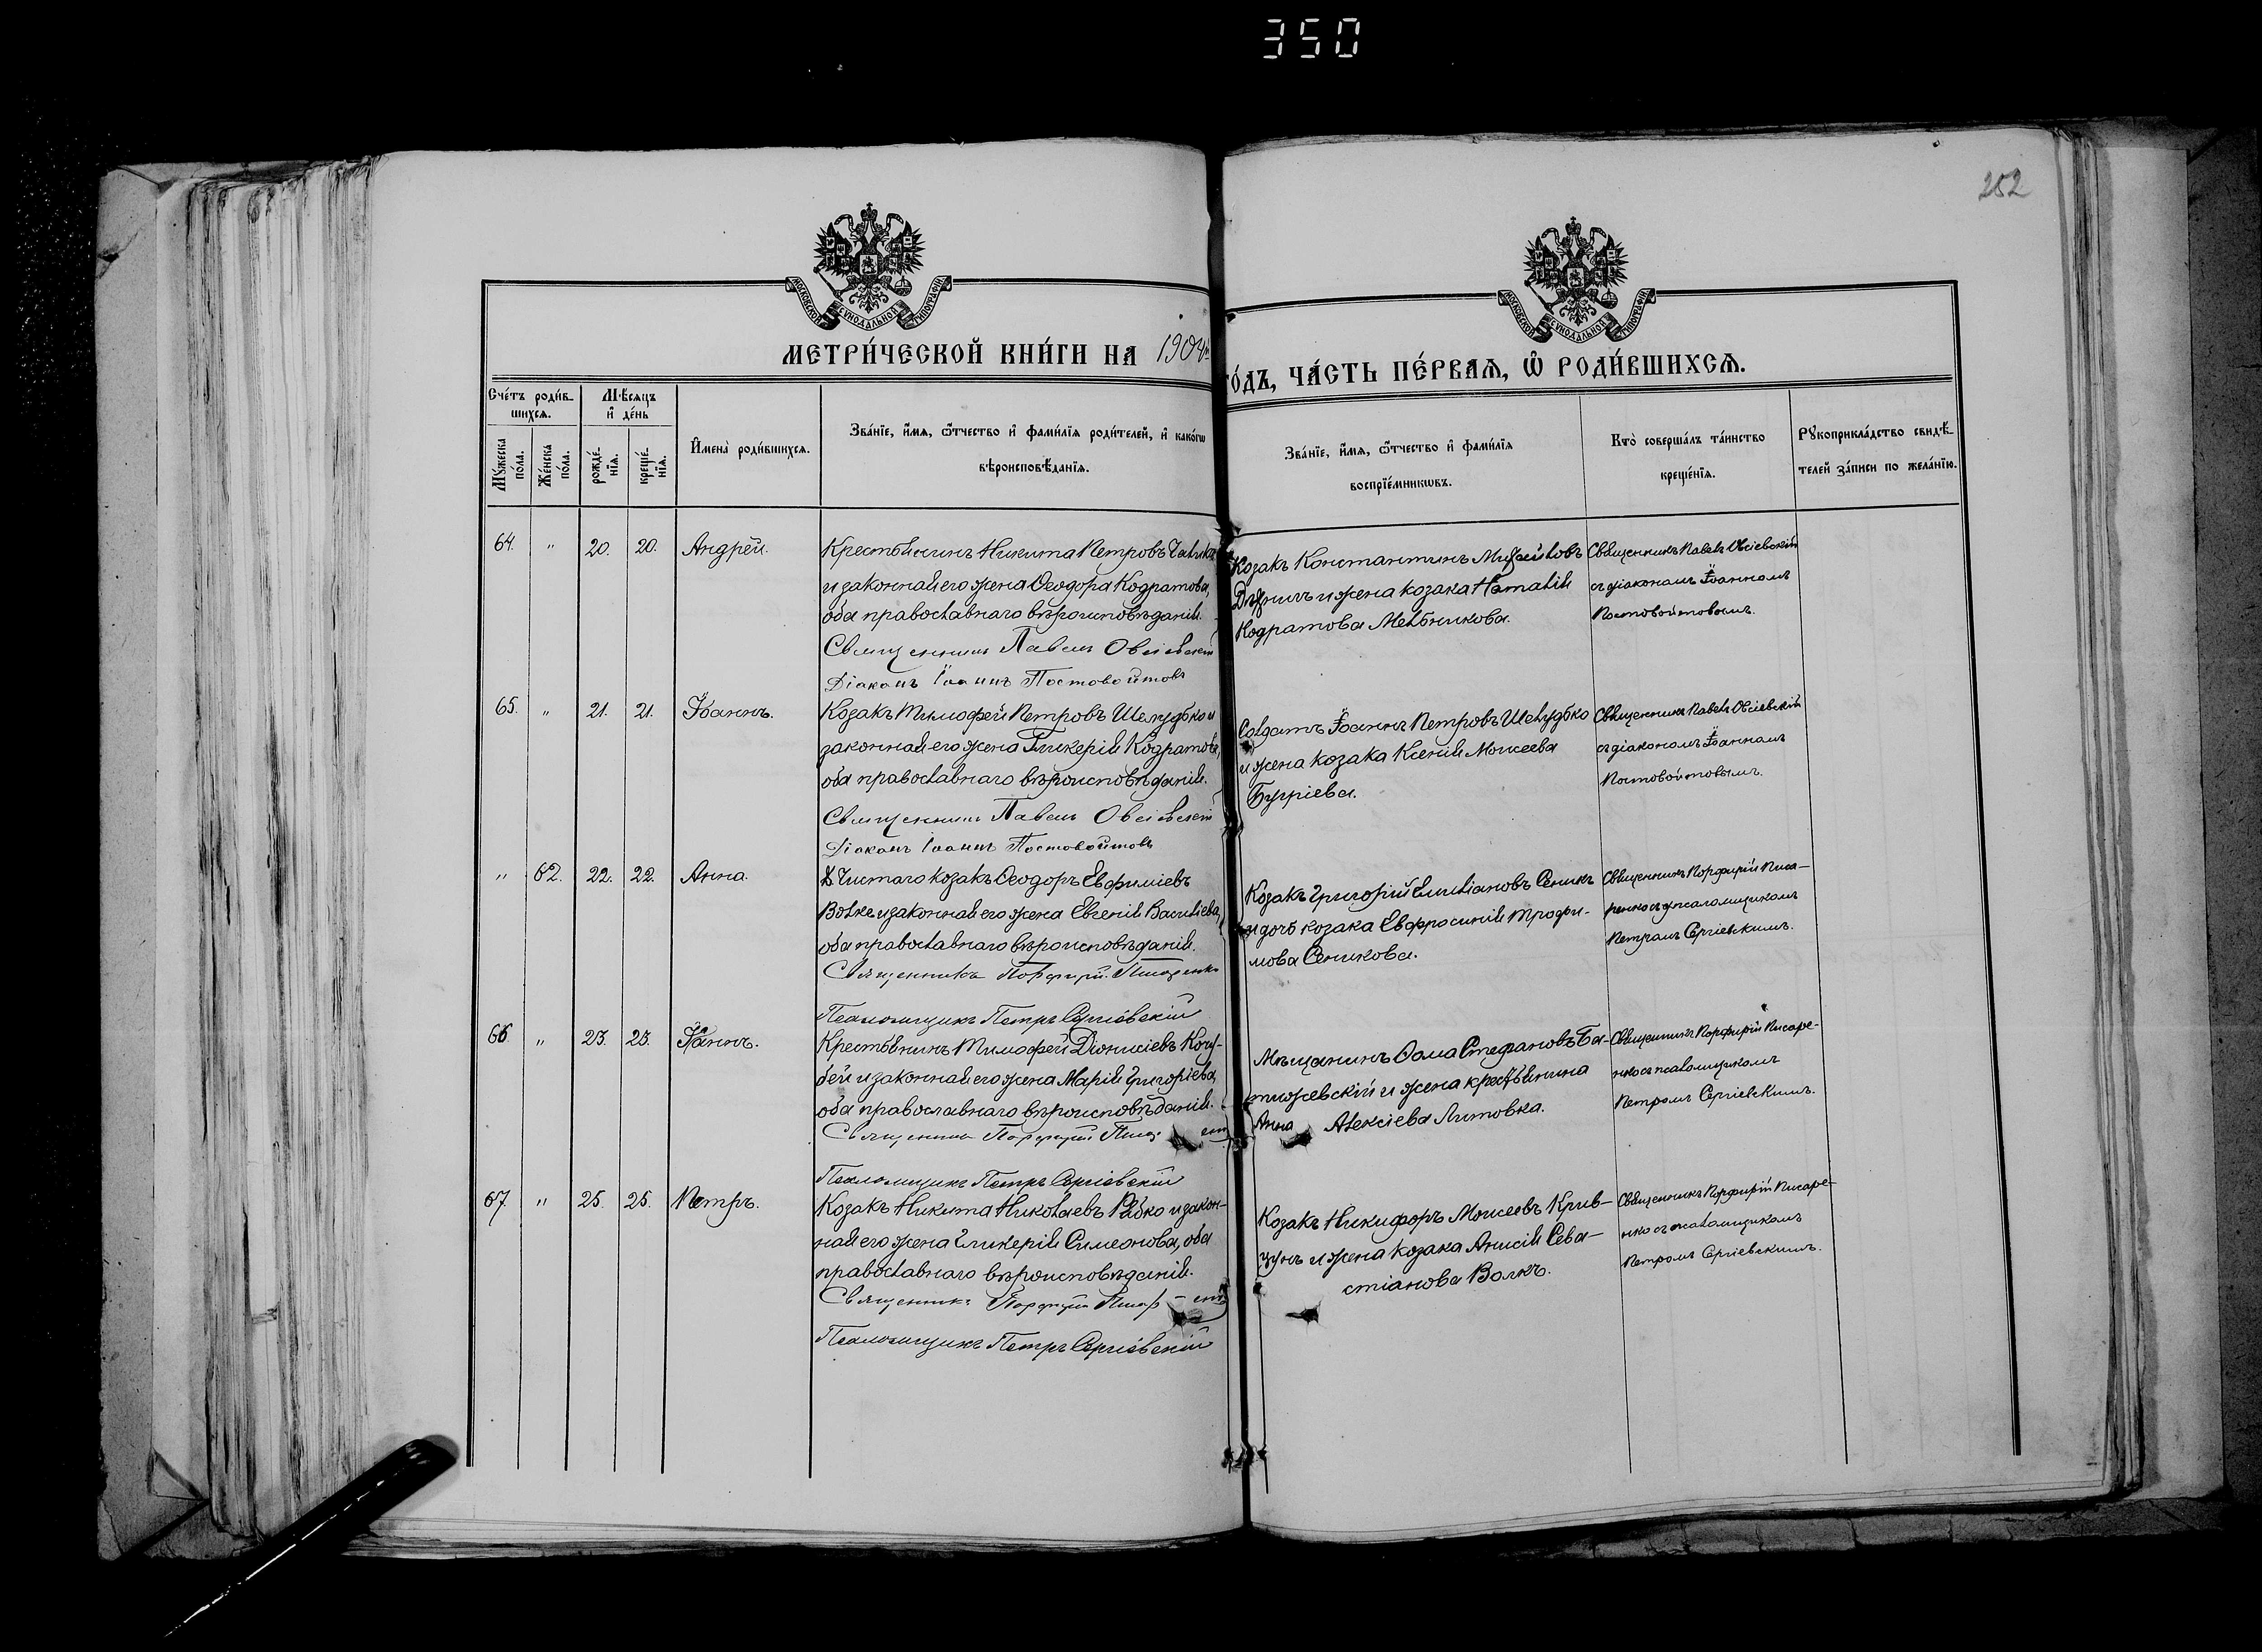 350
252
МОСКОВСКОЙ СѴНОДАЛЬНОЙ ТИПОГРАФІИ
МОСКОВСКОЙ СѴНОДАЛЬНОЙ ТИПОГРАФІИ
МЕТРИ́ЧЕСКОЙ КНИ́ГИ НА 1904й
ГО́ДЪ, ЧА́СТЬ ПЕ́РВАѦ, Ѡ РОДИ́ВШИХСѦ.
Сче́тъ роди́в-
шихсѧ.
Мꙋ́жеска по́ла.
Же́нска по́ла.
Мѣ́сѧцъ
и҆ де́нь
рожде́-
нїѧ.
креще́-
нїѧ.
И҆мена̀ роди́вшихсѧ.
Зва́нїе, и҆́мѧ, ѻ҆́тчество и҆ фами́лїѧ роди́телей, и҆ како́гѡ
вѣроисповѣ́данїѧ.
Зва́нїе, и҆́мѧ, ѻ҆́тчество и҆ фами́лїѧ
воспрїе́мникѡвъ.
Кто̀ соверша́лъ та́инство
креще́нїѧ.
Рꙋкоприкла́дство свидѣ́-
телей за́писи по жела́нїю.
64. " 20. 20. Андрей.
Крестьянинъ Никита Петровъ
и законная его жена Ѳеодора Кодратова,
оба православнаго вѣроисповѣданія.
Священникъ Павелъ Овсіевскій
Діаконъ Іоаннъ Постовойтовъ
Козакъ Константинъ
и жена козака Наталія
Кодратова Мельникова.
Священникъ Павелъ Овсіевскій
съ діакономъ Іоанномъ
Постовойтовымъ.
65. " 21. 21. Іоаннъ.
Козакъ Тимофей Петровъ Шелудько и
законная его жена Гликерія Кодратова,
оба православнаго вѣроисповѣданія.
Священникъ Павелъ Овсіевскій
Діаконъ Іоаннъ Постовойтовъ
Солдатъ Іоаннъ Петровъ Шелудько
и жена козака Ксенія Моисеева
Бугріева.
Священникъ Павелъ Овсіевскій
съ діакономъ Іоанномъ
Постовойтовымъ.
" 62. 22. 22. Анна.
Х. Чистаго козакъ Ѳеодоръ Евфиміевъ
Волкъ и законная его жена Евгенія Василіева,
оба православнаго вѣроисповѣданія.
Священникъ Порфирій Писаренко
Псаломщикъ Петръ Сергіевскій
Козакъ Григорій Емиліановъ Сеникъ
и дочь козака Евфросинія Трофи-
мова Сеникова.
Священникъ Порфирій Писа-
ренко съ псаломщикомъ
Петромъ Сергіевскимъ.
66. " 23. 23. Іоаннъ.
Крестьянинъ Тимофей Діонисіевъ Кочу-
бей и законная его жена Марія Григоріева,
оба православнаго вѣроисповѣданія.
Священникъ Порфирій
Псаломщикъ Петръ Сергіевскій
Мѣщанинъ Ѳома Стефановъ Ба-
тіожевскій и жена крестьянина
Анна Алексіева Литовка.
Священникъ Порфирій Писаре-
нко съ псаломщикомъ
Петромъ Сергіевскимъ.
67. " 25. 25. Петръ.
Козакъ Никита Николаевъ Рябко и закон-
ная его жена Гликерія Симеонова, оба
православнаго вѣроисповѣданія.
Священникъ Порфирій
Псаломщикъ Петръ Сергіевскій
Козакъ Никифоръ Моисеевъ Крив-
цунъ и жена козака Анисія Сева-
стіанова Волкъ.
Священникъ Порфирій Писаре-
нко съ псаломщикомъ
Петромъ Сергіевскимъ.